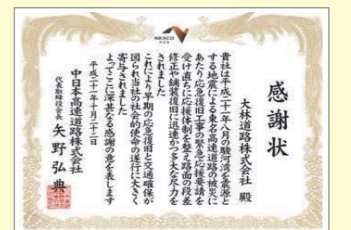 NEXCO
感謝状
大林道路株式会社 殿
貴社は平成二十一年八月の駿河湾を震源と
する地震による東名高速道路の被災に
あたり応急復旧工事の緊急応援要請を
受け直ちに応援体制を整え路面の段差
修正や舗装復旧に迅速かつ多大な尽力を
されました
これにより早期の応急復旧と交通確保が
図られ当社の社会的使命の遂行に大きく
寄与されました
よってここに深甚なる感謝の意を表します
平成二十一年十月二十二日
中日本高速道路株式会社
代表取締役会長 矢野弘典